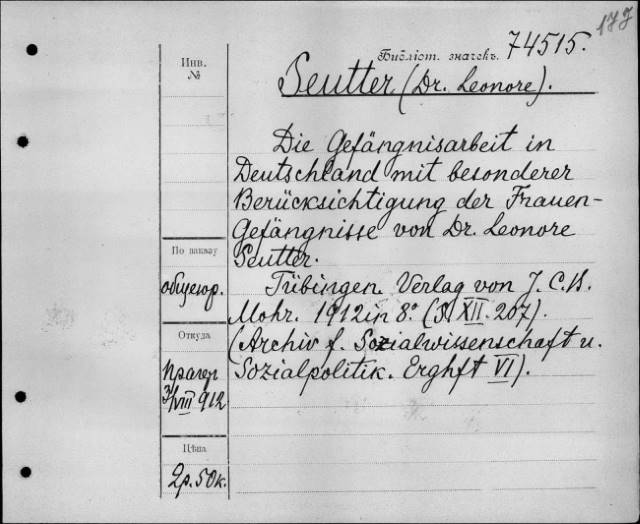 177
Библіот. значекъ. 74515.
Инв.
№
Seutter (Dr. Leonore).
Die Gefängnisarbeit in
Deutschland mit besonderer
Berücksichtigung der Frauen-
Gefängnisse von Dr. Leonore
Seutter.
По заказу
общеюр.
Tübingen. Verlag von J. C. B.
Mohr. 1912 in 8° (S. XII. 207).
(Archiv f. Sozialwissenschaft u.
Sozialpolitik. Erghft VI).
Откуда
Прагер
VIII 912
Цѣна
2р. 50к.